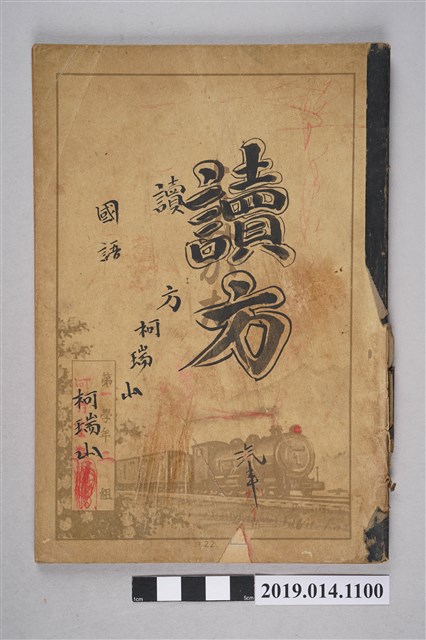 讀方
讀方
國語
柯瑞山
柯瑞山
第一學年 組
汽車
1cm
5cm
2019.014.1100